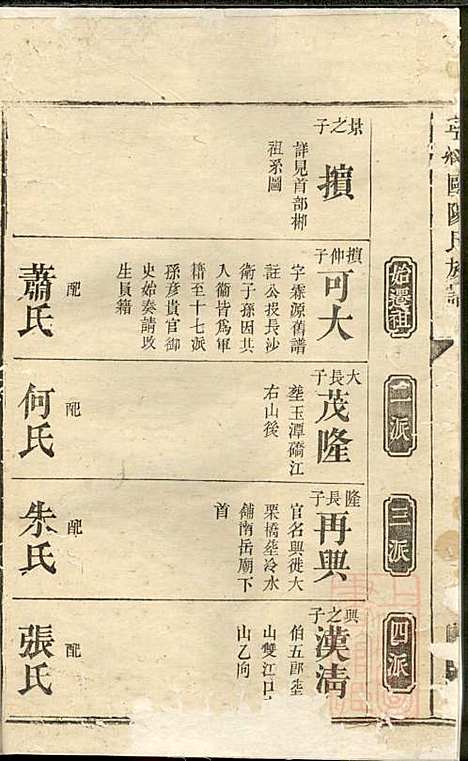 陽氏族譜
始遷祖
二派
三派
四派
景之子
擯
詳見首部郴
祖系圖
擯仲子
可大
字霖源舊譜
註公投長沙
衛子孫因共
入衛皆爲軍
籍至十七派
孫彥貴官御
史始奏請改
生員籍
配
蕭氏
大長子
茂隆
塟玉潭礄江
右山後
配
何氏
隆長子
再興
官名興徙大
栗橋塟冷水
鋪南岳廟下
首
配
朱氏
興之子
漢淸
伯五郎塟
山雙江口
山乙向
配
張氏